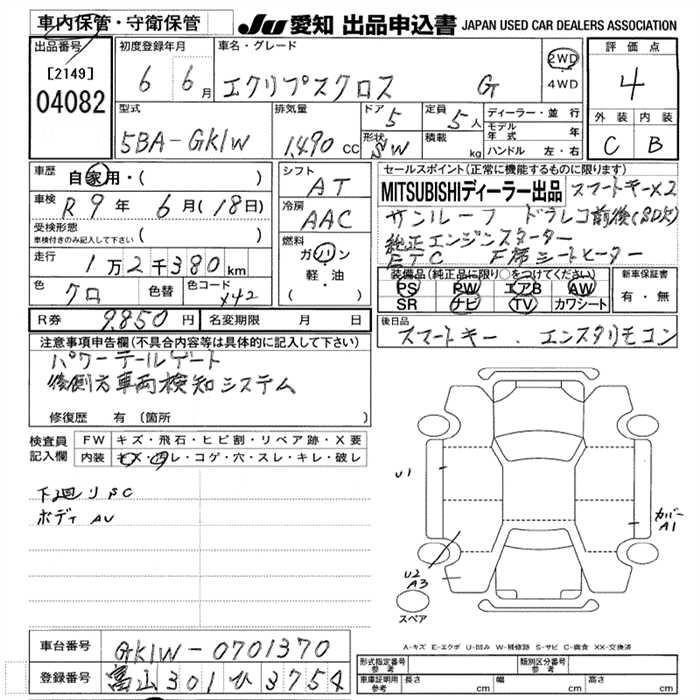 車内保管・守衛保管
JU 愛知 出品申込書 JAPAN USED CAR DEALERS ASSOCIATION
出品番号
[2149]
04082
初度登録年月
6 6月
車名・グレード
エクリプスクロス G
2WD
4WD
評価点
4
外装 内装
C B
型式
5BA-GK1W
排気量
1490 cc
ドア 5
形状 SW
定員 5人
積載 kg
ディーラー・並行
モデル年式 年
ハンドル 左・右
車歴 自家用・( )
車検 R9年6月(18日)
受検形態
車検付きのみ記入して下さい ( )
走行 1万2千380km
色 クロ 色替 色コード X42
シフト
AT
冷房
AAC
燃料
ガソリン
軽・油
( )
セールスポイント(正常に機能するものに限ります)
MITSUBISHIディーラー出品 スマートキーX2
サンルーフ ドラレコ前後(SD欠)
純正エンジンスターター
ETC F席シートヒーター
装備品(純正品に限り○をつけてください)
PS PW エアB AW
SR ナビ TV カワシート
新車保証書
有・無
R券 9,850円 名変期限 月 日
後日品 スマートキー、エンスタリモコン
注意事項申告欄(不具合内容等は具体的に記入して下さい)
パワーテールゲート
後側方車両検知システム
修復歴 有 (箇所 )
検査員記入欄
FW キズ・飛石・ヒビ割・リペア跡・X要
内装 キズ・凹レ・コゲ・穴・スレ・キレ・破レ
下廻りSC
ボディAU
U1
U2
A3
カバー
A1
スペア
A-キズ E-エクボ U-凹み W-補修跡 S-サビ C-腐食 XX-交換済
車台番号 GK1W-0701370
登録番号 富山301ひ3754
形式指定番号 参考
類別区分番号 参考
車庫証明用 参考 長さ cm 幅 cm 高さ cm